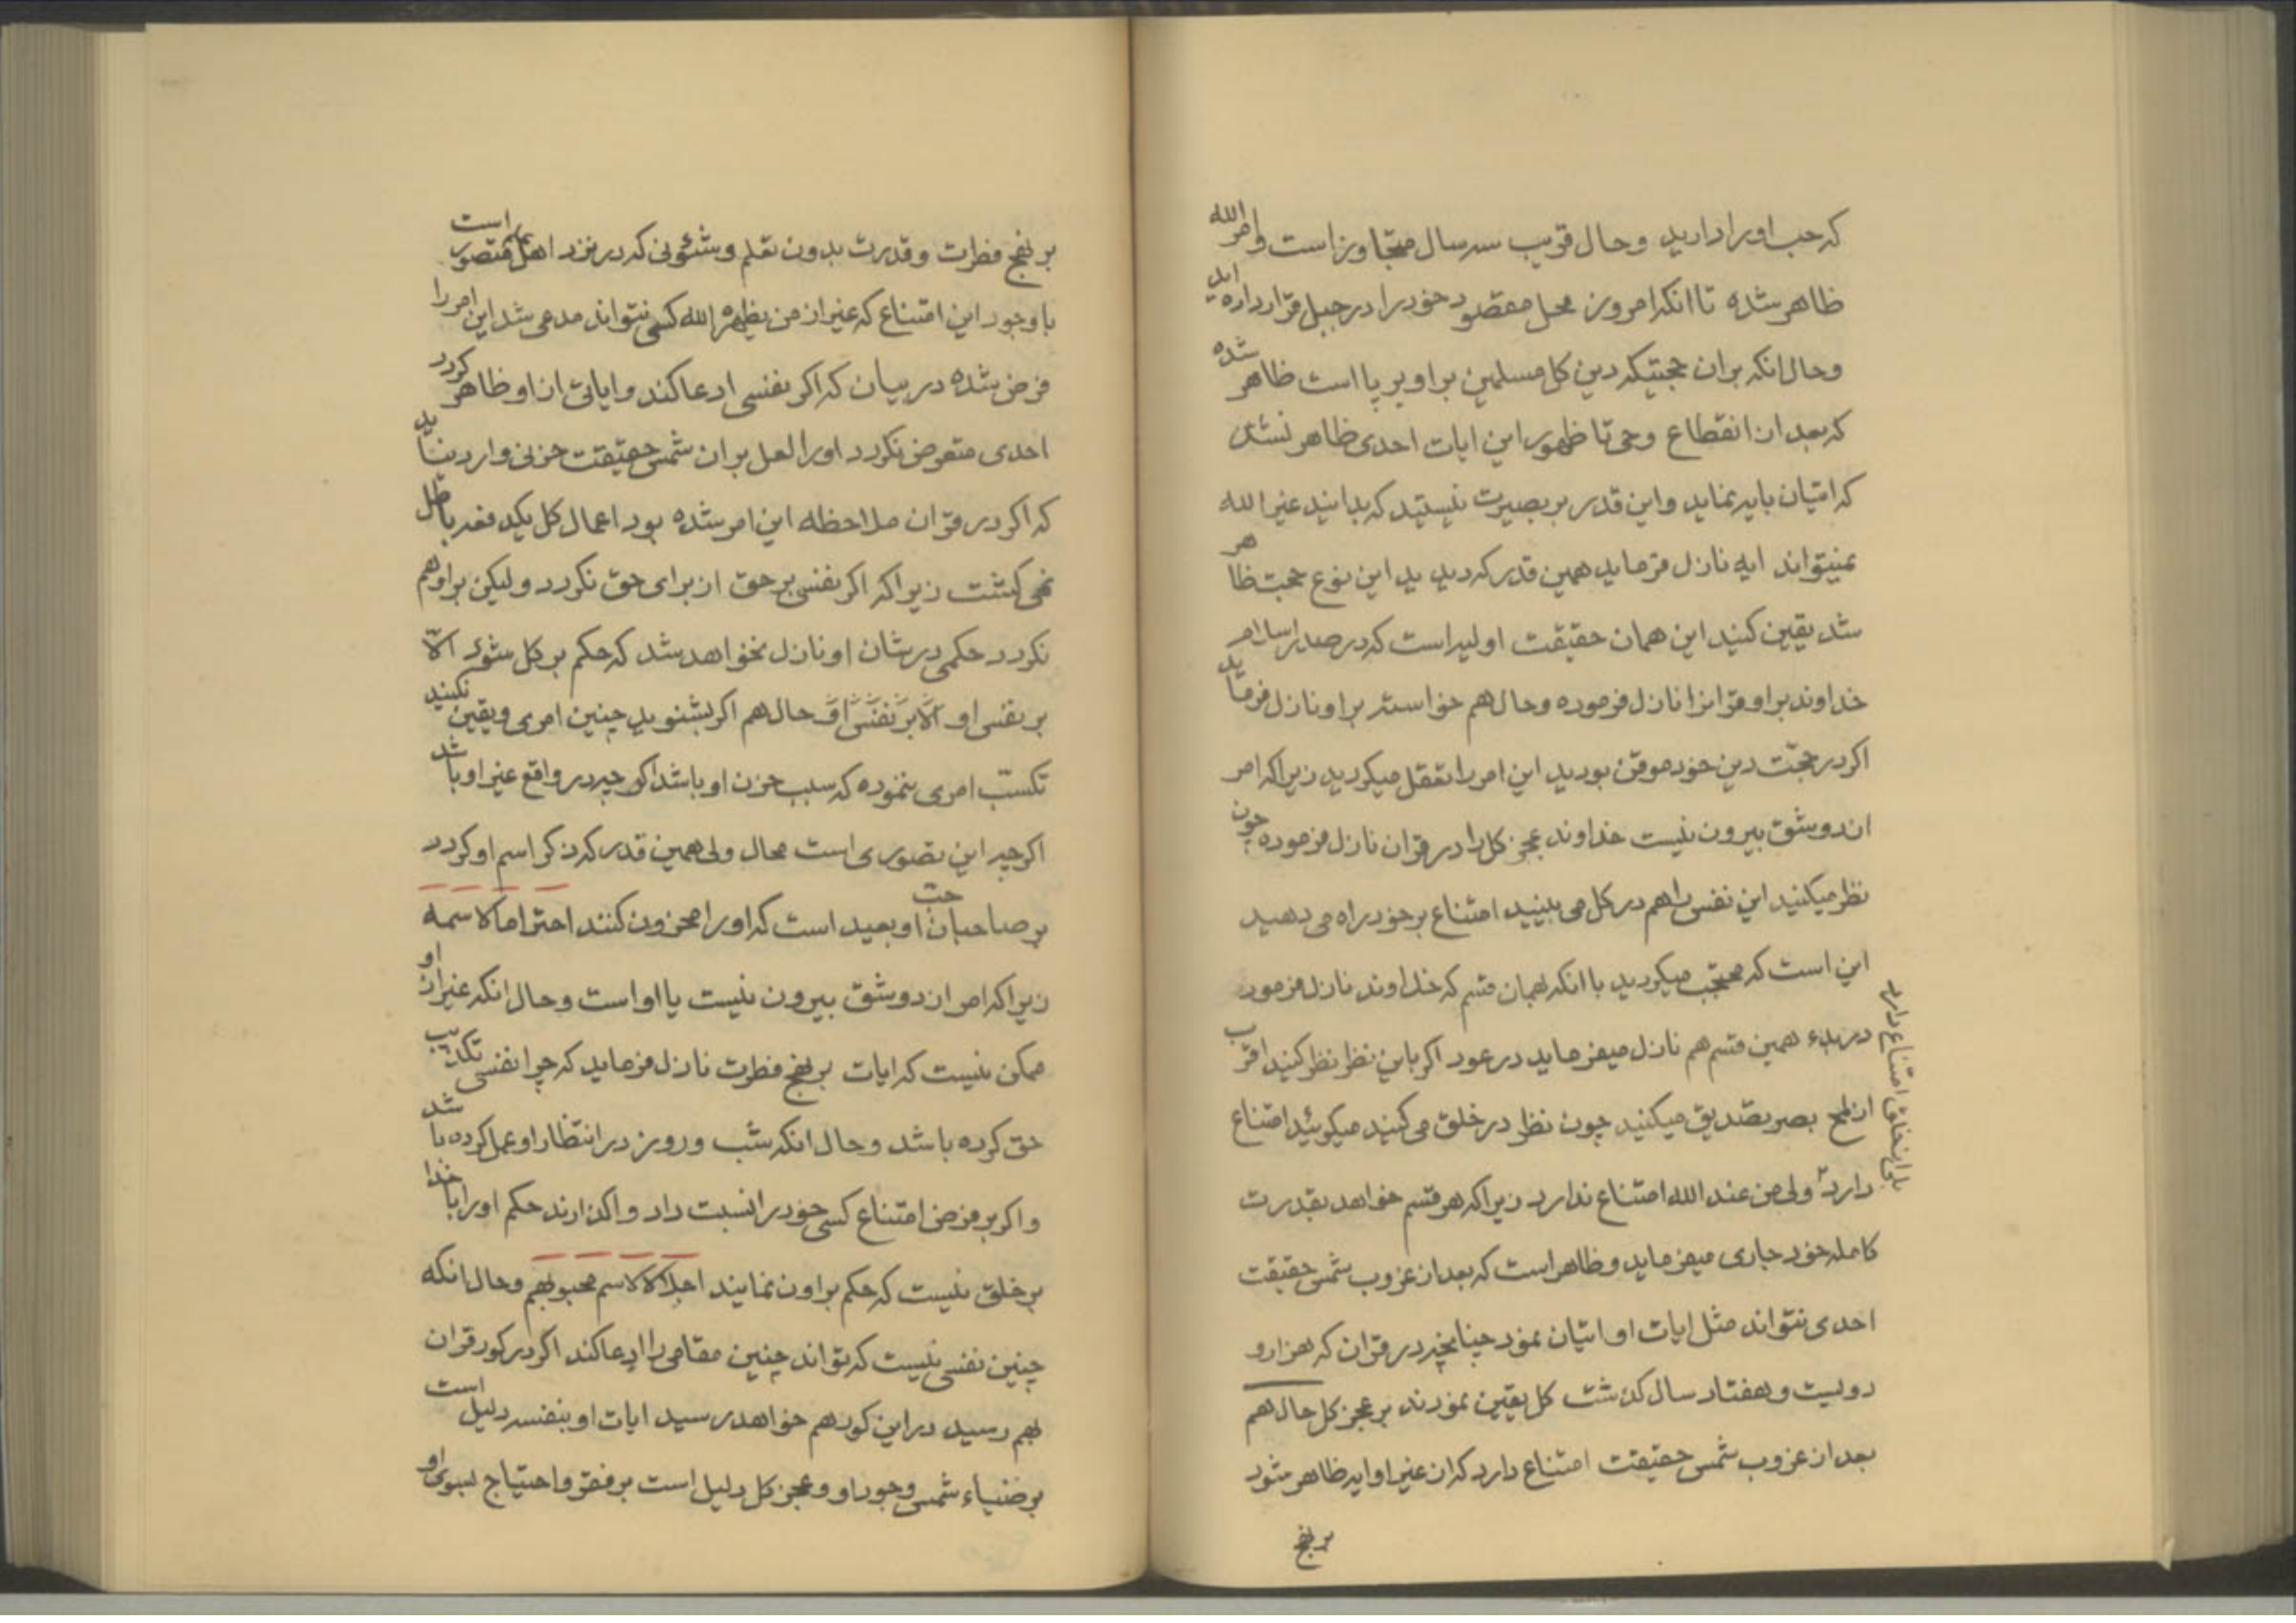 که حب او را دارید وحال قریب سه سال متجاوز است وامر الله
ظاهر شده تا انکه امروز محل مقصود خود را در جبل قرار داده اید
وحال انکه بران حجتیکه دین کل مسلمین براو بر پا است ظاهر شده
که بعد از انقطاع وحی تا ظهور این ایات احدی ظاهر نشد
که اتیان بایه نماید واین قدر بر بصیرت نیستید که بدانید غیر الله
نمیتواند ایه نازل فرماید همین قدر که دیدید این نوع حجت ظاهر
شد یقین کنید این همان حقیقت اولیه است که در صدر اسلام
خداوند براو قرانرا نازل فرموده وحال هم خواسته براو نازل فرماید
اکر در حجّت دین خود موقن بودید این امر را تعقل میکردید زیرا که امر
از دو شق بیرون نیست خداوند عجز کل را در قران نازل فرموده چون
نظر میکنید این نفس را هم در کل می بینید امتناع بر خود راه می دهید
این است که محتجب میکردید با انکه بهمان قسم که خداوند نازل فرمود
در بدء همین قسم هم نازل میفرماید در عود اکر باین نظر نظر کنید اقرب
از لمح بصر تصدیق میکنید چون نظر در خلق می کنید میکوئید امتناع
دارد ولی من عند الله امتناع ندارد زیرا که هر قسم خواهد بقدرت
بلی از خلق امتناع دارد
کامله خود جاری میفرماید وظاهر است که بعد از غروب شمس حقیقت
احدی نتواند مثل ایات او اتیان نمود چنانچه در قران که هزار و
دویست وهفتاد سال کذشت کل یقین نمودند بر عجز کل حال هم
بعد از غروب شمس حقیقت امتناع دارد که از غیر او ایه ظاهر شود
بر نهج
بر نهج فطرت وقدرت بدون تعلم وشئونی که در نزد اهل علم متصور است
با وجود این امتناع که غیر از من یظهره الله کسی نتواند مدعی شد این امر را
فرض شده در بیان که اکر نفسی ادعا کند وایاتی از او ظاهر کردد
احدی متعرض نکردد اورا لعل بر ان شمس حقیقت حزنی وارد نیاید
که اکر در قران ملاحظه این امر شده بود اعمال کل یکدفعه باطل
نمی کشت زیرا که اکر نفسی بر حق از برای حق نکردد ولیکن براو هم
نکردد حکمی در شان او نازل نخواهد شد که حکم بر کل شود الّا
بر نفس او الّا بر نفس او حال هم اکر بشنوید چنین امری ویقین نکنید
تکسّب امری ننموده که سبب حزن او باشد اکر چه در واقع غیر او باشد
اکر چه این تصوری است محال ولی همین قدر که ذکر اسم او کردد
بر صاحبان حب او بعید است که اورا محزون کنند احتراما لاسمه
زیرا که امر از دو شق بیرون نیست یا او است وحال انکه غیر از او
ممکن نیست که ایات بر نهج فطرت نازل فرماید که چرا نفسی تکذیب
حق کرده باشد وحال انکه شب وروز در انتظار او عمل کرده باشد
واکر بر فرض امتناع کسی خود را نسبت داد واکذارند حکم اورا با خدا
بر خلق نیست که حکم براون نمایند اجلالا لاسم محبوبهم وحال انکه
چنین نفسی نیست که تواند چنین مقامی را ادعا کند اکر در کور قران
بهم رسید در این کور هم خواهد رسید ایات او بنفسه دلیل است
بر ضیاء شمس وجود او وعجز کل دلیل است بر فقر واحتیاج بسوی او